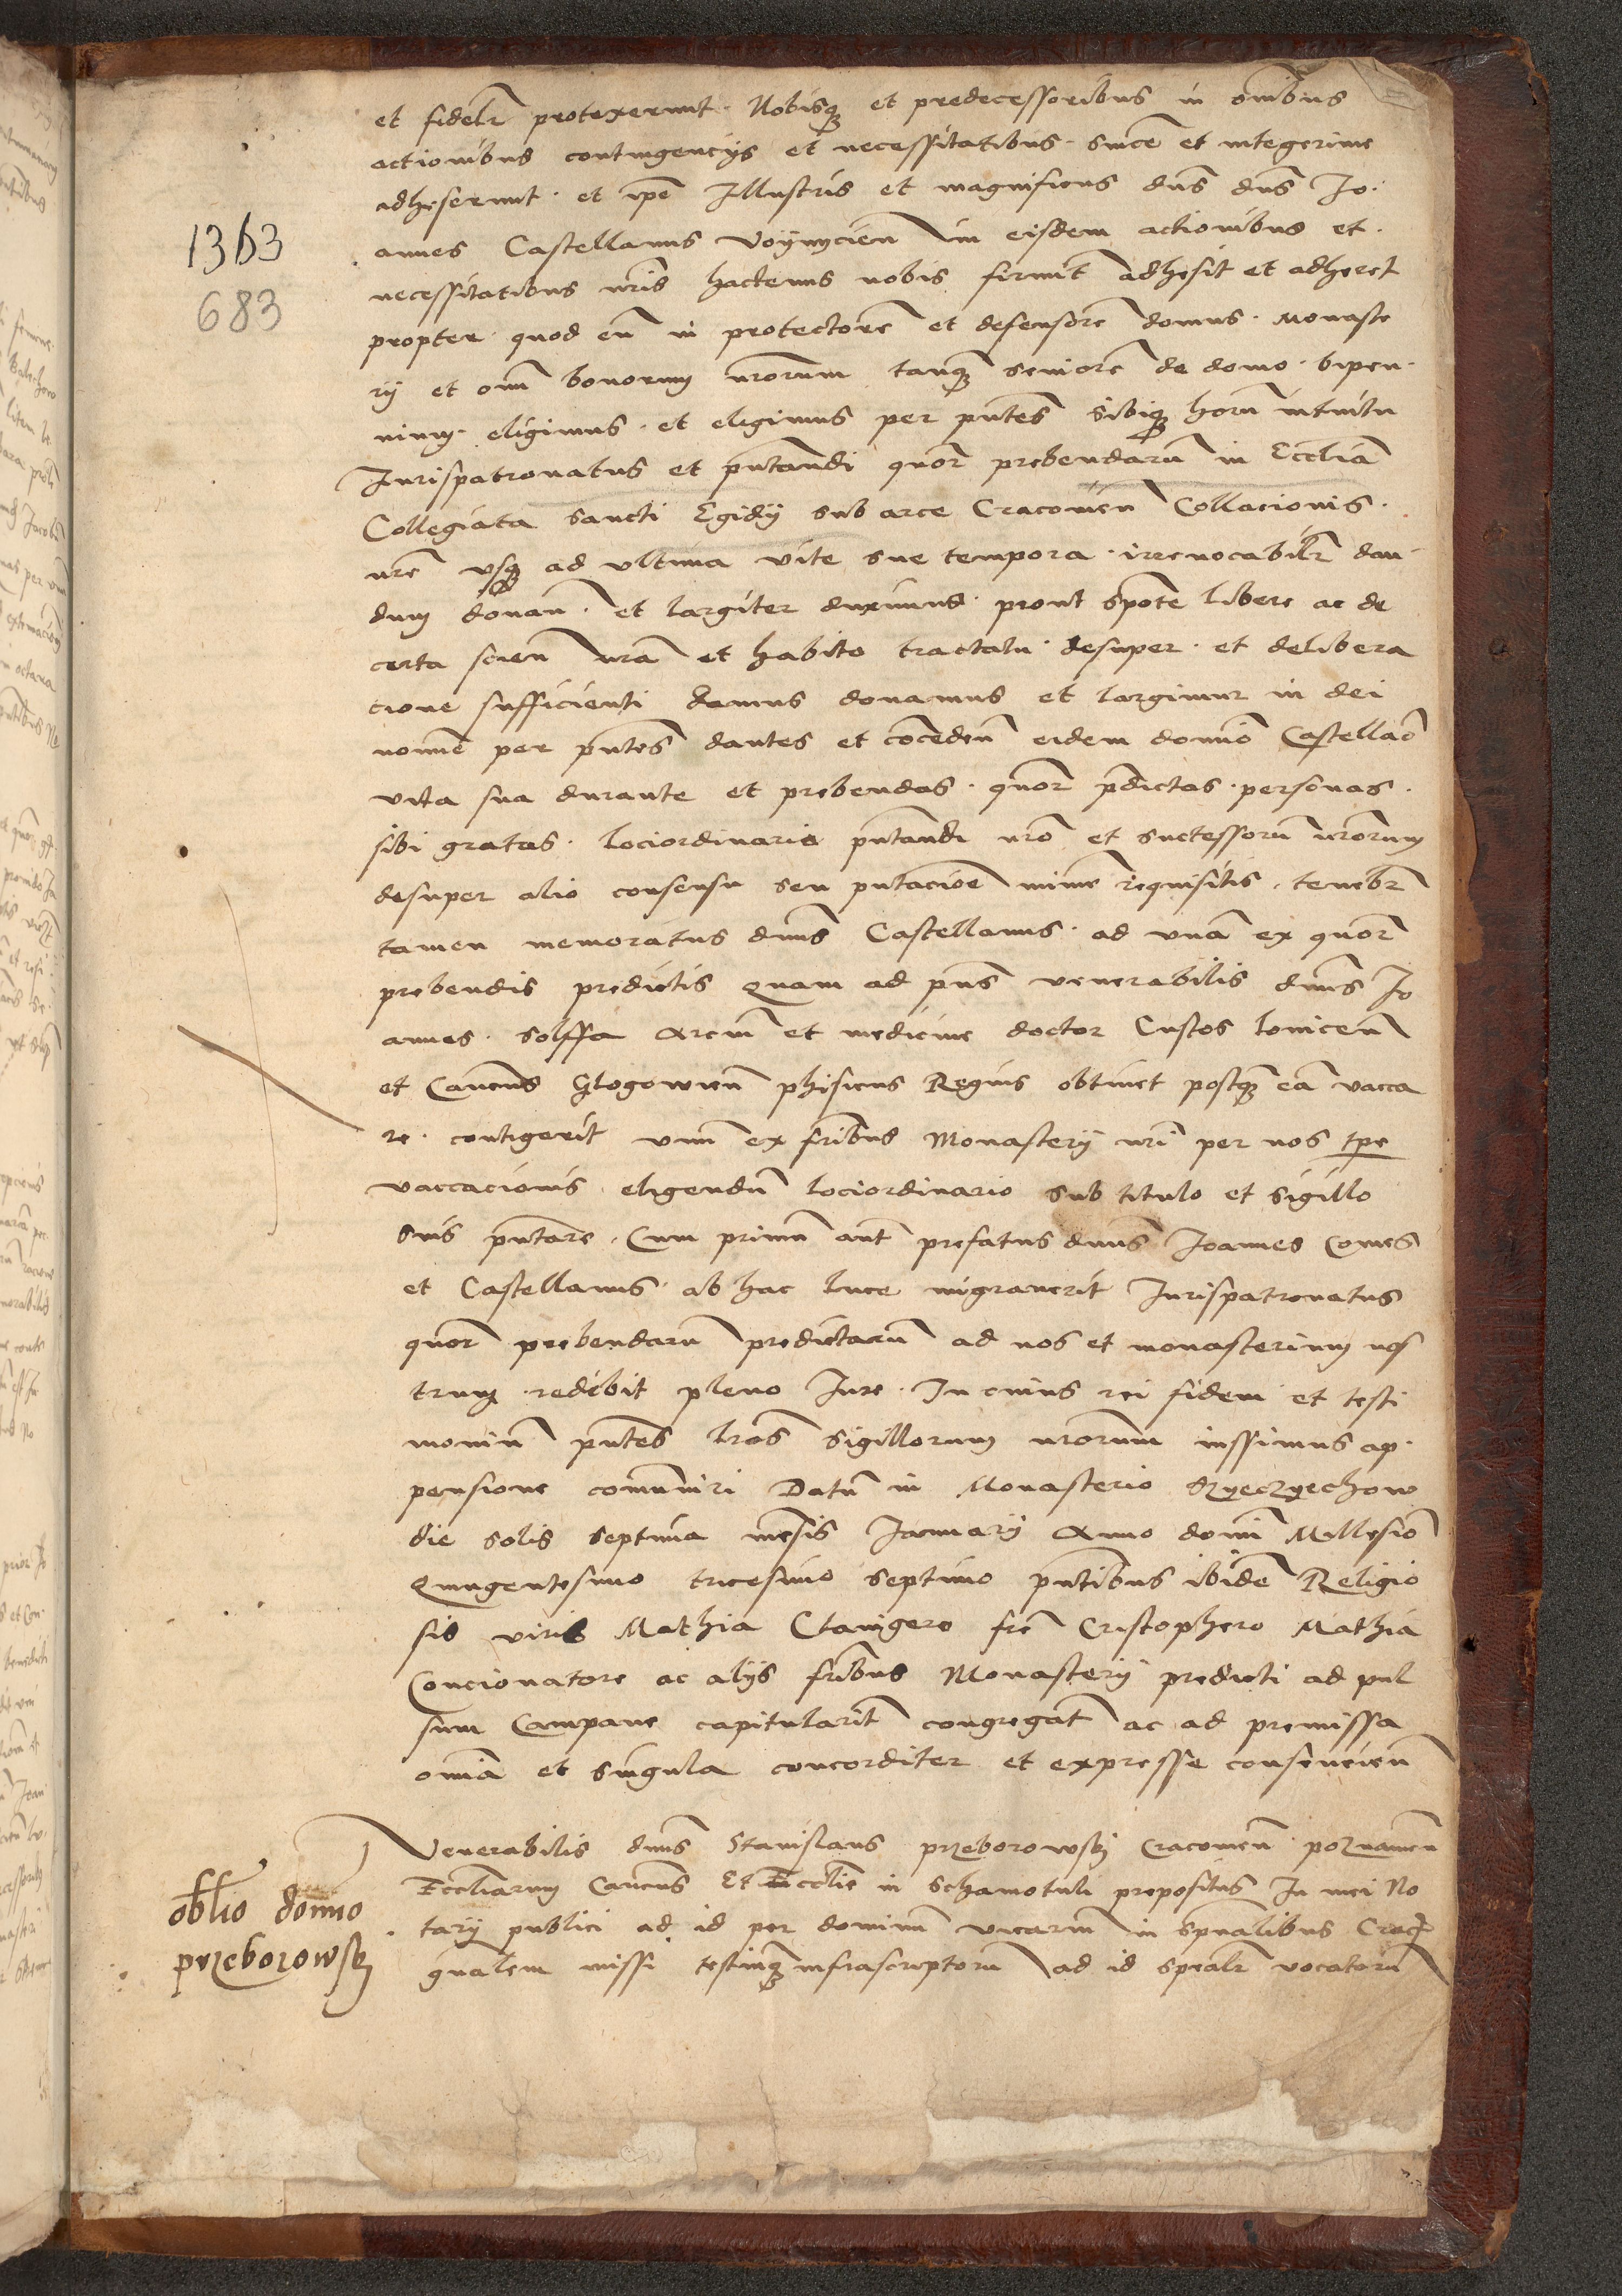 et fidelr protexerunt. Nobisq et predecessoribus in omibus
actionibus contingencys et necessitatibus. sincē et integerime
adheserunt. et ipē Illustris et magnificus dns dns Jo.
1363
annes Castellanus Voynycien in eisdem actionibus et.
necessitatibus nris hactenus nobis firmit adhesit et adheret
683
propter quod eū in protectorē et defensorē domus. Monaste
ry et oim bonorum nrorum tanq seniorē de domo. bipen.
nium. eligimus. et eligimus per pntes sibiq horū intuitu
Jurispatronatus et pntandi quor prebendarū in Ecclia
Collegiata sancti Egidy sub arce Cracouien Collacionis.
nrē usq ad ultima vite sue tempora. irreuocabilr dan
dum donan. et largiter duximus. prout sponte libere ac de
certa scien nra et habito tractatu desuper. et delibera
cione sufficienti damus donamus et largimur in dei
nomīe per pntes dantes et cōceden eidem domīo Castellāo
vita sua durante et prebendas. quor pdictas. personas.
sibi gratas. lociordinario pntandi nrō et successorū nrorum
desuper alio consensu seu pntacione mīme requisitis. tenebr
tamen memoratus dnus Castellanus. ad unā ex quor
prebendis predictis quam ad pns venerabilis dnus Jo
annes. solffa Arcium et medicine doctor Custos lovicen
et Canonicus Glogowien phisicus Regius obtinet postq eā vacca
re. contigerit unū ex fribus Monastery nri per nos tpe
vaccacionis eligendū lociordinario sub titulo et sigillo
suis pntare. Cum primū aut prefatus dnus Joannes Comes
et Castellanus. ab hac luce migrauerit Jurispatronatus
quor prebendarū predictarū ad nos et monasterium nos
trum redibit pleno Jure. In cuius rei fidem et testi
moniū pntes lras sigillorum nrorum iussimus ap.
pensione comuniri Datū in Monasterio Szyeczyechow
die solis septima mēsis Januarij Anno domī Millesimo
Quingentesimo tricesimo septimo pntibus ibidē Religio
sis viris Mathia Clauigero frē Cristophero Mathia
Concionatore ac alys fribus Monastery predicti ad pul
sum Campane capitularit congregat ac ad premissa
omīa et singula concorditer et expresse consencien
Venerabilis dnus Stanislaus przeborowsky Cracouien poznanien
Eccliarum Canonicus Et Ecclie in Schamotuli prepositus In mei No
oblio domīo
przeborowsky
tary publici ad id per dominum vicariū in spualibus Crac
gnalem missi testiumq infrascriptorū ad id spealr vocatorū